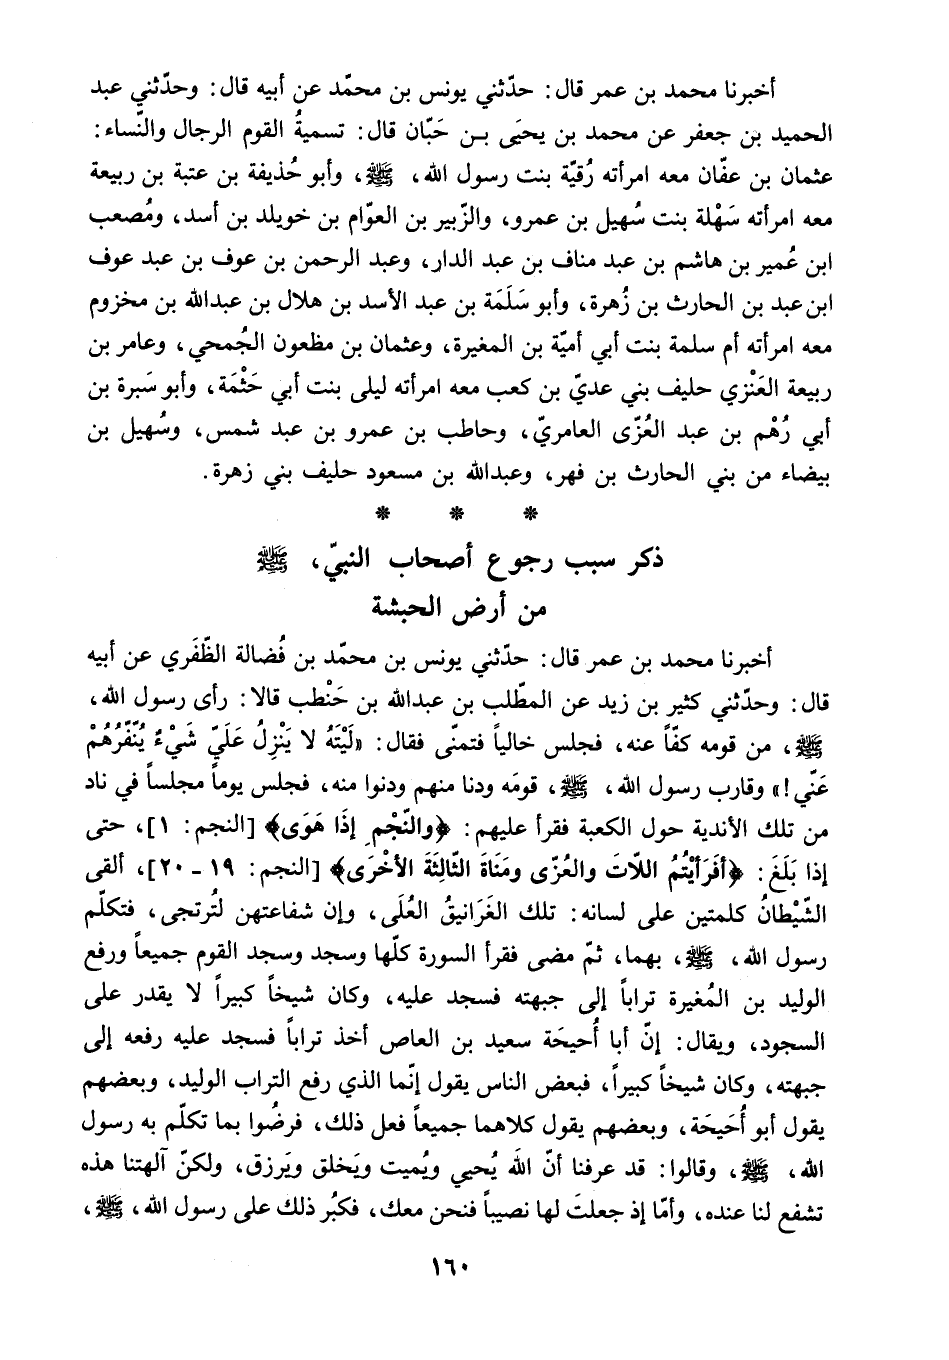 أخبرنا محمد بن عمر قال: حدّثني يونس بن محمّد عن أبيه قال: وحدّثني عبد
الحميد بن جعفر عن محمد بن يحيَى بـن حَبّان قال: تسميةُ القوم الرجال والنّساء:
عثمان بن عفّان معه امرأته رُقيّة بنت رسول الله، ﷺ، وأبو حُذيفة بن عتبة بن ربيعة
معه امرأته سَهْلة بنت سُهيل بن عمرو، والزّبير بن العوّام بن خويلد بن أسد، ومُصعب
ابن عُمير بن هاشم بن عبد مناف بن عبد الدار، وعبد الرحمن بن عوف بن عبد عوف
ابن عبد بن الحارث بن زُهرة، وأبو سَلَمَة بن عبد الأسد بن هلال بن عبدالله بن مخزوم
معه امرأته أم سلمة بنت أبي أميّة بن المغيرة، وعثمان بن مظعون الجُمحي، وعامر بن
ربيعة العَنْزي حليف بني عديّ بن كعب معه امرأته ليلى بنت أبي حَثْمَة، وأبو سَبرة بن
أبي رُهْم بن عبد العُزّى العامريّ، وحاطب بن عمرو بن عبد شمس، وسُهيل بن
بيضاء من بني الحارث بن فهر، وعبدالله بن مسعود حليف بني زهرة.
* * *
ذكر سبب رجوع أصحاب النبيّ، ﷺ
من أرض الحبشة
أخبرنا محمد بن عمر قال: حدّثني يونس بن محمّد بن فُضالة الظّفَري عن أبيه
قال: وحدّثني كثير بن زيد عن المطّلب بن عبدالله بن حَنْطب قالا: رأى رسول الله،
ﷺ، من قومه كفّاً عنه، فجلس خالياً فتمنّى فقال: «لَيْتَهُ لا يَنْزِلُ عَلَيّ شَيْءٌ يُنَفّرُهُمْ
عَنّي!» وقارب رسول الله، ﷺ، قومَه ودنا منهم ودنوا منه، فجلس يوماً مجلساً في ناد
من تلك الأندية حول الكعبة فقرأ عليهم: ﴿والنّجْمِ إذَا هَوَى﴾ [النجم: ١]، حتى
إذا بَلَغَ: ﴿أفَرَأيْتُمُ اللّاتَ والعُزّى ومَنَاةَ الثّالِثَةَ الأخْرَى﴾ [النجم: ١٩ ـ ٢٠]، ألقى
الشّيْطانُ كلمتين على لسانه: تلك الغَرَانيقُ العُلَى، وإن شفاعتهن لتُرتجى، فتكلّم
رسول الله، ﷺ، بهما، ثمّ مضى فقرأ السورة كلّها وسجد وسجد القوم جميعاً ورفع
الوليد بن المُغيرة تراباً إلى جبهته فسجد عليه، وكان شيخاً كبيراً لا يقدر على
السجود، ويقال: إنّ أبا أُحيحَة سعيد بن العاص أخذ تراباً فسجد عليه رفعه إلى
جبهته، وكان شيخاً كبيراً، فبعض الناس يقول إنّما الذي رفع التراب الوليد، وبعضهم
يقول أبو أُحَيحَة، وبعضهم يقول كلاهما جميعاً فعل ذلك، فرضُوا بما تكلّم به رسول
الله، ﷺ، وقالوا: قد عرفنا أنّ اللَه يُحيي ويُميت ويَخلق ويَرزق، ولكنّ آلهتنا هذه
تشفع لنا عنده، وأمّا إذ جعلتَ لها نصيباً فنحن معك، فكبُر ذلك على رسول الله، ﷺ،
١٦٠